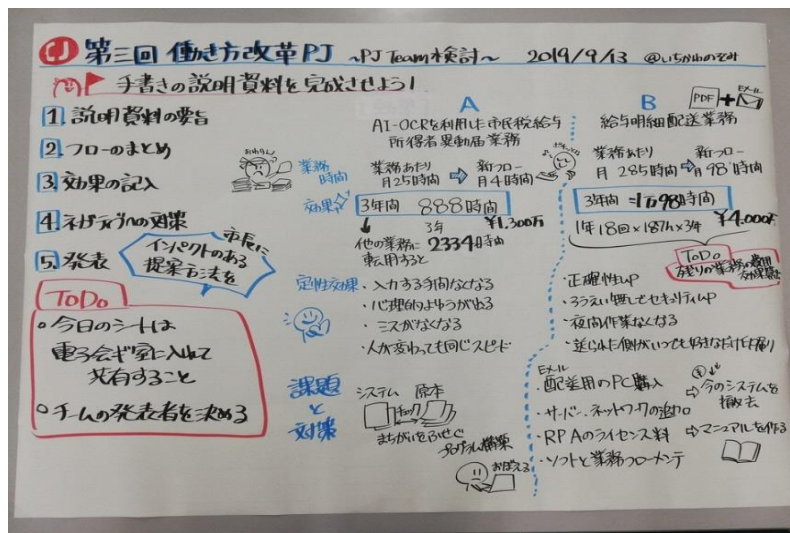 CJ 第三回 働き方改革PJ ～PJ Team検討～ 2019/9/13 @いちかわのぞみ
手書きの説明資料を完成させよう!
1 説明資料の要旨
2 フローのまとめ
3 効果の記入
4 ネガティブへの対策
5 発表
市長に
インパクトのある
提案方法を
ToDo
○今日のシートは
電子会ギ室に入れて
共有すること
○チームの発表者を決める
A
AI-OCRを利用した市民税給与
所得者異動届業務
業務時間
業務あたり 新フロー
月25時間 月4時間
効果
3年間 888時間
3年 ¥1,300万
他の業務に 2334時間
転用すると
定性効果
・入力する手間なくなる
・心理的よゆうがうまれる
・ミスがなくなる
・人が変わっても同じスピード
課題
と
対策
システム 原本
チェック
まちがいをふせぐ
プログラム構築
おぼえる
B
PDF + Eメール
給与明細配送業務
業務あたり 新フロー
月285時間 月98時間
3年間 =1万98時間
1年18回×187h×3年 ¥4,000万
ToDo
残りの業務の費用
・正確性UP
・ろうえい無しでセキュリティUP
・夜間作業なくなる
Eメール
・配送用のPC購入
今のシステムを
撤去
・サーバー、ネットワークの追加
・RPAのライセンス料
マニュアルを作る
・ソフトと業務フローメンテ